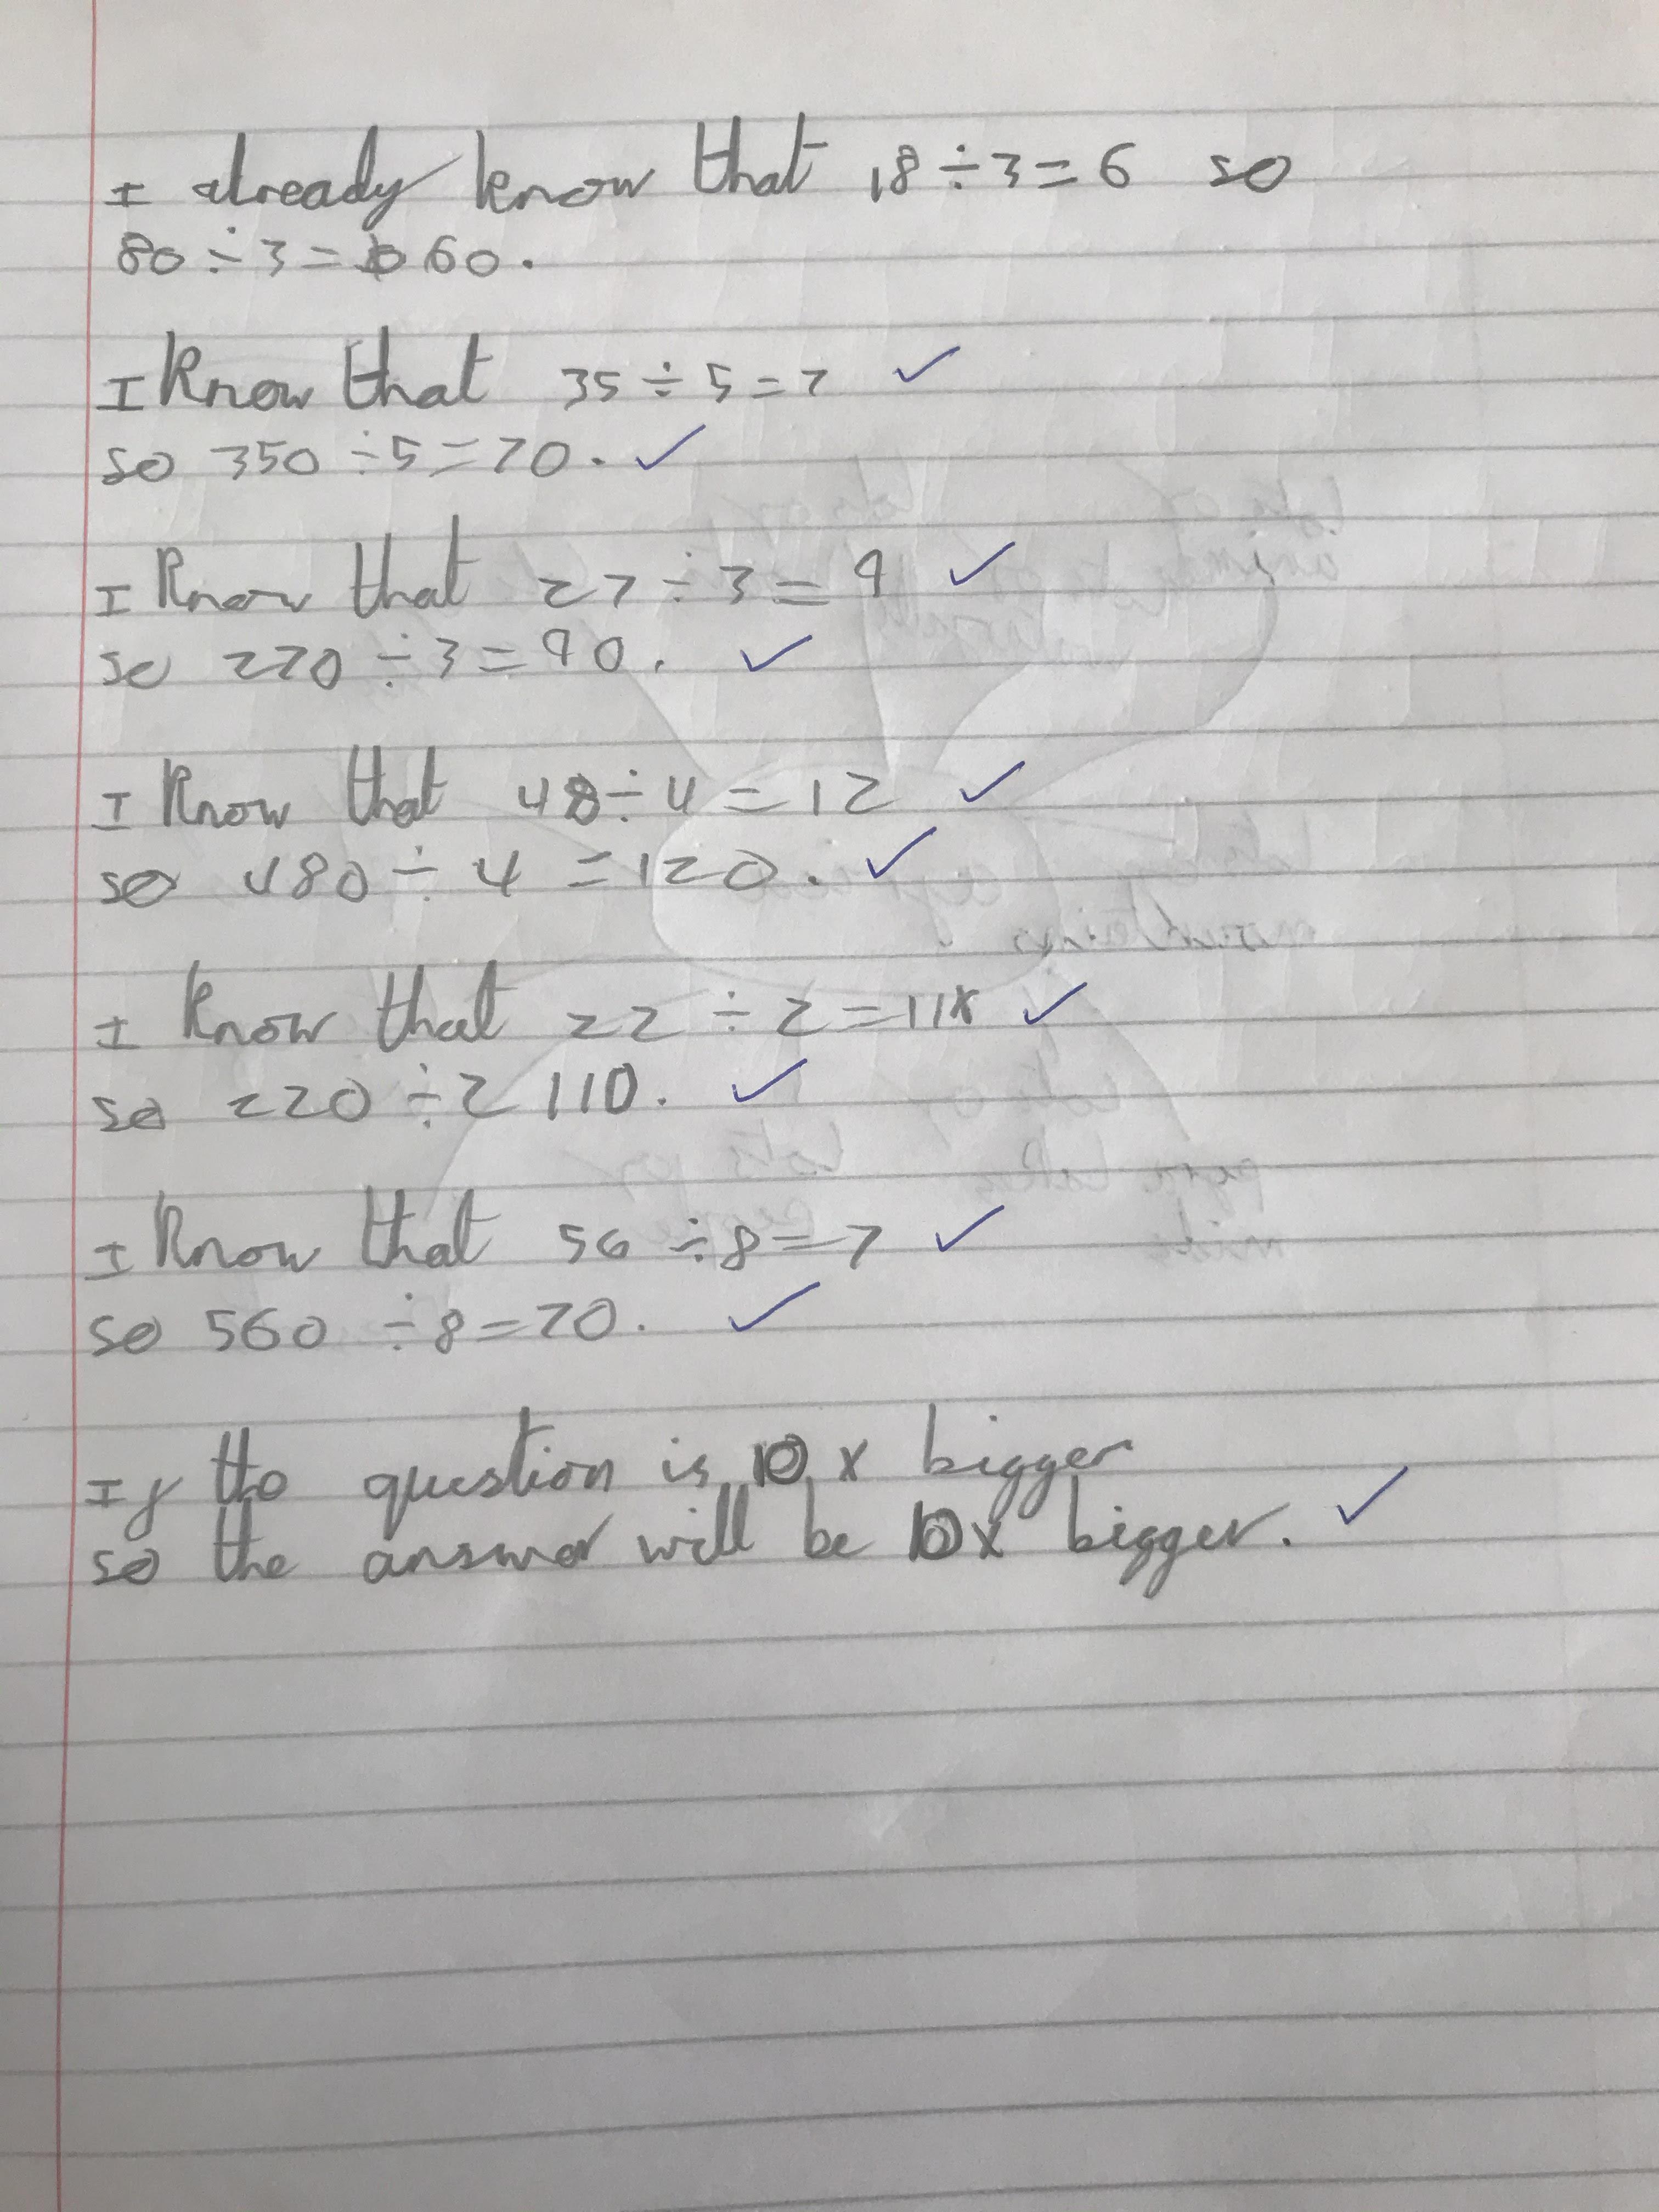 I already know that 18 ÷ 3 = 6 so
80 ÷ 3 = 60.
I know that 35 ÷ 5 = 7
so 350 ÷ 5 = 70.
I know that 27 ÷ 3 = 9
so 270 ÷ 3 = 90.
I know that 48 ÷ 4 = 12
so 480 ÷ 4 = 120.
I know that 22 ÷ 2 = 11
so 220 ÷ 2 110.
I know that 56 ÷ 8 = 7
so 560 ÷ 8 = 70.
If the question is 10 x bigger
so the answer will be 10x bigger.